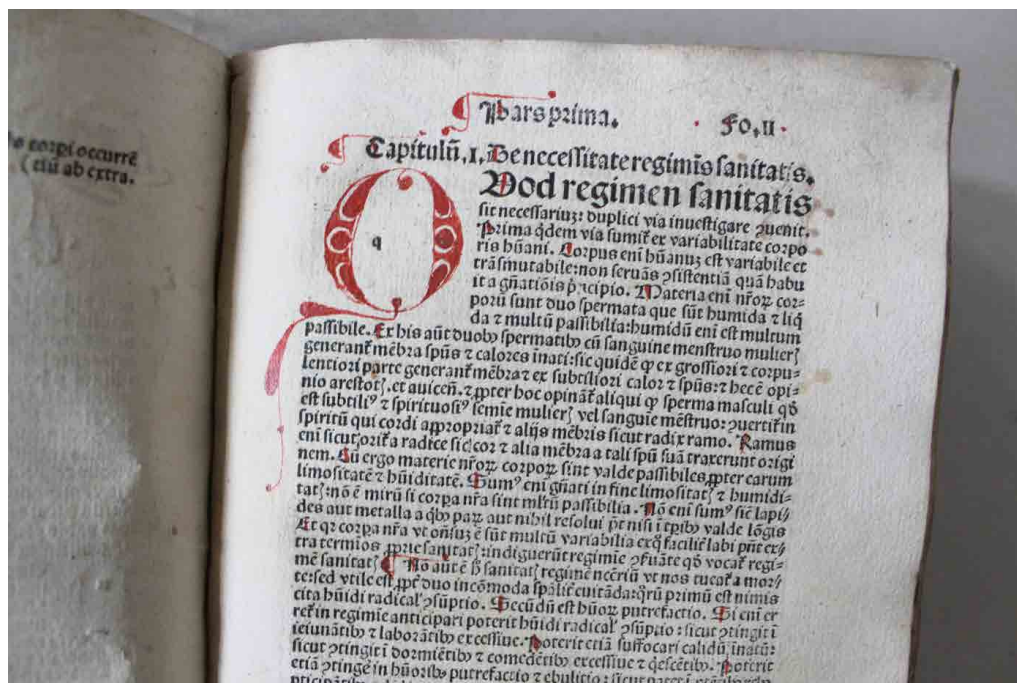 corpi occurrē
(tiū ab extra.
Pars prima.
Fo. II.
Capitulū. I. De necessitate regimīs sanitatis.
Qvod regimen sanitatis
sit necessariuꝫ: duplici via inuestigare ꝯuenit.
Prima qdem via sumit̄ ex variabilitate corpo
ris hūani. Corpus enī hūanuꝫ est variabile et
trāsmutabile: non seruās ꝯsistentiā quā habu
it a gn̄atiōis pricipio. Materia enī nr̄oꝝ cor-
porū sunt duo spermata que sūt humida ⁊ liq
da ⁊ multū passibilia: humidū enī est multum
passibile. Ex his aūt duobꝰ spermatibꝰ cū sanguine menstruo mulierꝭ
generant̄ mēbra spūs ⁊ calores īnati: sic quidē ꝙ ex grossiori ⁊ corpu-
lentiori parte generant̄ mēbra ⁊ ex subtiliori calor ⁊ spūs: ⁊ hec ē opi-
nio arestotꝭ. et auicen̄. ⁊ ꝓpter hoc opinat̄ aliqui ꝙ sperma masculi qd̄
est subtiliꝰ ⁊ spirituosiꝰ semīe mulierꝭ vel sanguīe mēstruo: ꝯuertit̄ in
spiritū qui cordi appropriat̄ ⁊ alijs mēbris sicut radix ramo. Ramus
enī sicut orit̄ a radice sic cor ⁊ alia mēbra a tali spū suā traxerunt origi
nem. Cū ergo materie nr̄oꝝ corpoꝝ sint valde passibiles ꝓpter earum
limositatē ⁊ hūiditatē. Sumꝰ enī gn̄ati in fine limositatꝭ ⁊ humidi-
tatꝭ: nō ē mirū si corpa nr̄a sint ml̄tū passibilia. Nō enī sumꝰ sic̄ lapi-
des aut metalla a qbꝰ paꝝ aut nihil resolui pōt nisi ī tp̄ibꝰ valde lōgis
Et qꝛ corpa nr̄a vt on̄suꝫ ē sūt multū variabilia exq̄ facilit̄ labi pn̄t ex-
tra termīos ꝓprie sanitatꝭ: indiguerūt regimīe ꝯseruāte qd̄ vocat̄ regi-
mē sanitatꝭ Nō aūt ē h̄ sanitatꝭ regimē necc̄riū vt nos tueat̄ a mor-
te: sed vtile est ꝓpt̄ duo incōmoda spāl̄it euitāda: qrū primū est nimis
cita hūidi radicalꝭ ꝯsūptio. Secūdū est hūoꝝ putrefactio. Si enī er
ret̄ in regimīe anticipari poterit hūidi radicalꝭ ꝯsūptio: sicut ꝯtingit ī
ieiunātibꝰ ⁊ laborātibꝰ excessiue. Poterit etiā suffocari calidū īnatū:
sicut ꝯtingit ī dormiētibꝰ ⁊ comedētibꝰ excessiue ⁊ q̄escētibꝰ. Poterit
etiā ꝯtingē in hūoribꝰ putrefactio ⁊ ebulitio: sicut